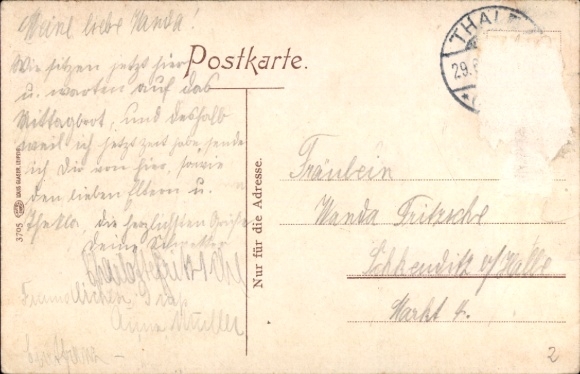 Meine liebe Wanda!
Postkarte.
THALE
29.
Wir sitzen jetzt hier
u. warten auf das
Mittagbrot, und deshalb
weil ich jetzt Zeit habe, sende
ich Dir von hier, sowie
den lieben Eltern u.
Thekla, die herzlichsten Grüße
Deine
Freundlichen Gruß
Anna Mueller
3705
Nur für die Adresse.
Fräulein
Wanda Fritzsche
Schkeuditz b/Halle
Markt 4.
2